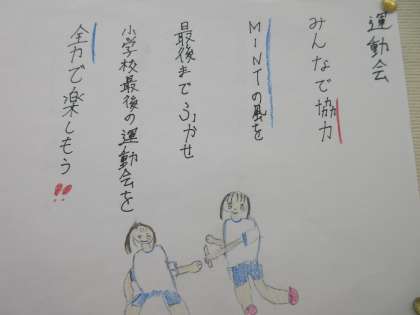 運動会
みんなで協力
MINTの風を
最後までふかせ
小学校最後の運動会を
全力で楽しもう!!